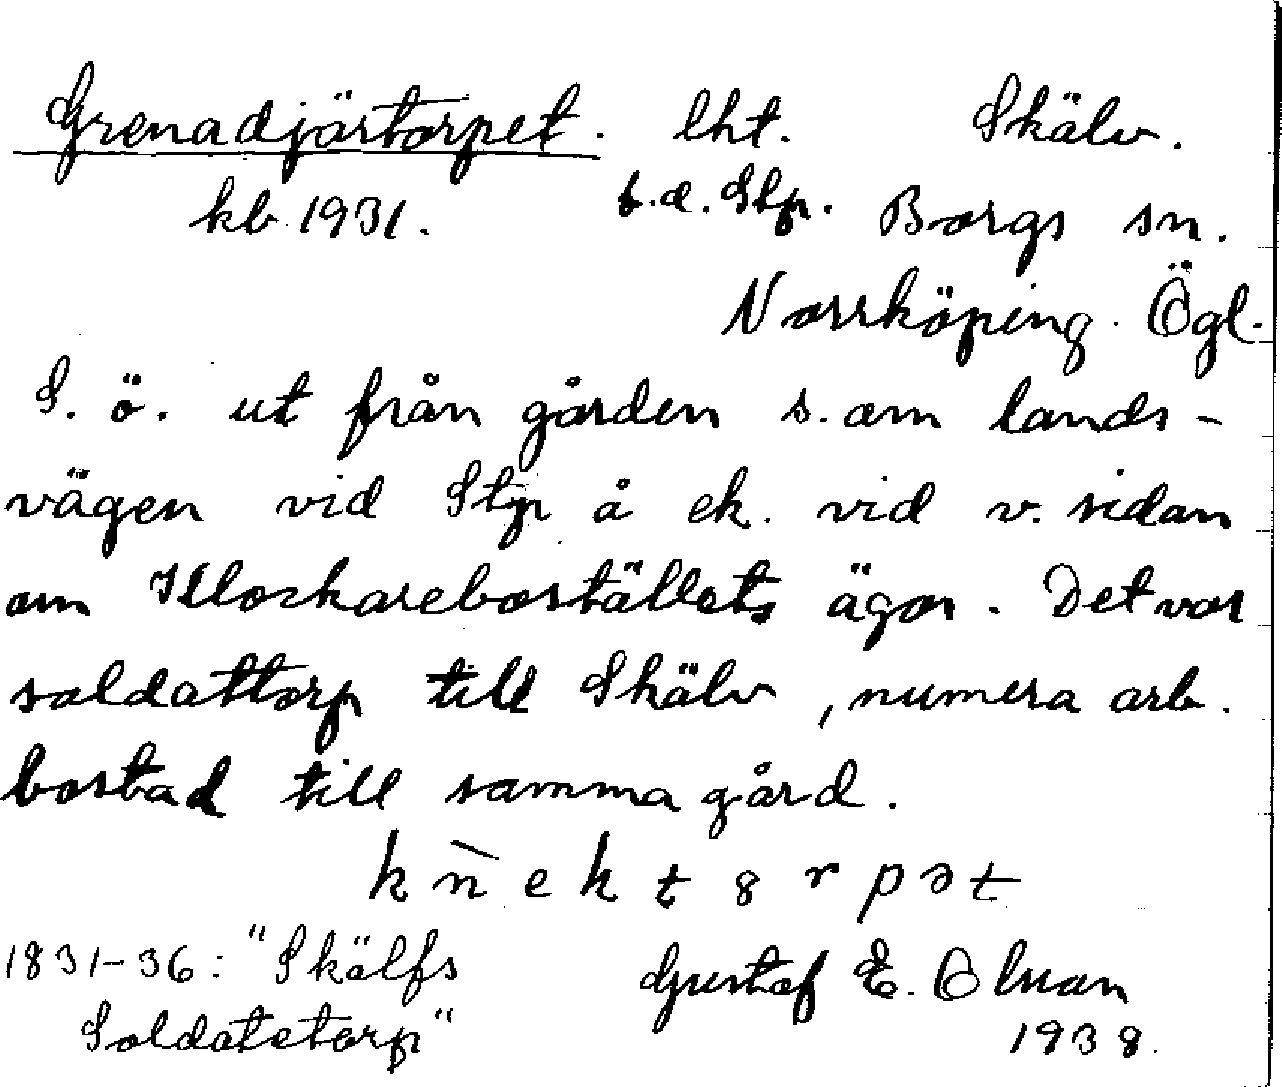 Grenadjärtorpet. lht. Skälv.
kb. 1931. f.d. Stp. Borgs sn.
Norrköping. Ögl.
S. ö. ut från gården s. om lands-
vägen vid Stp å ek. vid v. sidan
om Klockareboställets ägor. Det var
soldattorp till Skälv, numera arb.
bostad till samma gård.
knekt8rpət
1831-36: "Skälfs
Soldatetorp"
Gustaf E. Olsson
1938.